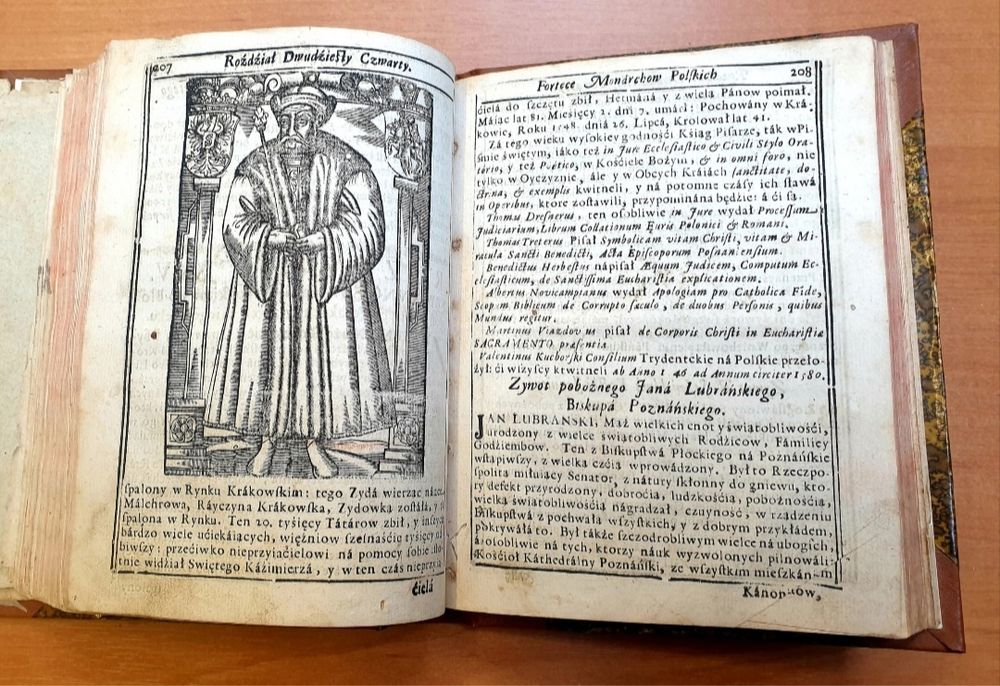 207
Roźdźiał Dwudźieſty Czwarty.
ſpalony w Rynku Krákowskim: tego Zydá wierząc
Málchrowa, Ráyczyna Krákowska, Zydowka zoſtáłá, y
ſpalona w Rynku. Ten 20. tyſięcy Tátárow zbił, y inſzych
bárdzo wiele ućiekáiących, więźniow ſzeſnaśćie tyſięcy
biwszy: przećiwko nieprzyiaćielowi ná pomocy ſobie
tnie widźiał Swiętego Káźimierzá, y w ten czás nieprzyia
ćielá
Fortece Monarchow Polſkich
208
ćielá do szczętu zbił, Hetmáná y z wielą Pánow poimał.
Máiąc lat 81. Mieśięcy 2. dni 7. umárł: Pochowány w Krá-
kowie, Roku 1548. dniá 26. Lipcá, Krolował lat 41.
Zá tego wieku wysokiey godnośći Kśiąg Piſarze, ták w Pi-
śmie świętym, iáko też in Jure Eccleſiaſtico & Civili Stylo Ora-
torio, y też Poëtico, w Kośćiele Bożym, & in omni foro, nie
tylko w Oyczyznie, ále y w Obcych Kráiách ſanctitate, do-
ctrina, & exemplis kwitneli, y ná potomne czáſy ich ſławá
in Operibus, ktore zoſtáwili, przypominána będźie: á ći ſą.
Thomas Dreſnerus, ten oſobliwie in Jure wydał Proceſſum
Judiciarium, Librum Collationum Juris Polonici & Romani.
Thomas Treterus Piſał Symbolicam vitam Chriſti, vitam & Mi-
racula Sancti Benedicti, Acta Epiſcoporum Poſnanienſium.
Benedictus Herbeſtus nápiſał Æquum Judicem, Computum Ec-
cleſiaſticum, de Sanctiſſima Euchariſtia explicationem.
Albertus Novicampianus wydał Apologiam pro Catholica Fide,
Scopum Biblicum de Corrupto ſæculo, de duobus Perſonis, quibus
Mundus regitur.
Martinus piſał de Corporis Chriſti in Euchariſtiæ
SACRAMENTO præſentia
Valentinus Kuchorſki Conſilium Trydentckie ná Polſkie przeło-
żył: ći wſzyſcy kwitneli ab Anno 1 46 ad Annum circiter 1580.
Zywot pobożnego Janá Lubráńſkiego,
Biskupá Poznáńſkiego.
JAN LUBRANSKI, Mąż wielkich cnot y świątobliwośći,
urodzony z wielce świątobliwych Rodźicow, Fámiliey
Godźiembow. Ten z Biskupſtwá Płockiego ná Poznáńſkie
wſtąpiwszy, z wielką czćią wprowádzony. Był to Rzeczpo-
ſpolitą miłuiący Senator, z nátury ſkłonny do gniewu, kto-
ry defekt przyrodzony, dobroćią, ludzkośćią, pobożnośćią,
wielką świątobliwośćią nágradzał, czuyność, w rządzeniu
Biskupſtwá z pochwałą wszyſtkich, y z dobrym przykłádem,
pokrywáłá to. Był tákże szczodrobliwym wielce ná ubogich,
á oſobliwie ná tych, ktorzy náuk wyzwolonych pilnowáli:
Kośćioł Káthedrálny Poznáńſki, ze wszyſtkim
Kánonikow,